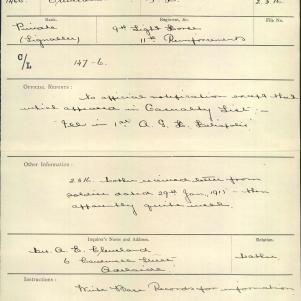 Rank.
Regiment, &c.
File No.
Private
(Signaller)
9th Light Horse
11th Reinforcements
C/L
147-6.
OFFICIAL REPORTS:
no official notification except that
which appeared in Casualty List:-
"Ill in 1st A. G. H. Heliopolis"
Other Information:
letter from
soldier dated 29th Jan, 1915 - then
apparently quite well.
Inquirer's Name and Address.
Relation.
A. E. Cleveland
6
Adelaide
Instructions:
Write Base Records for information